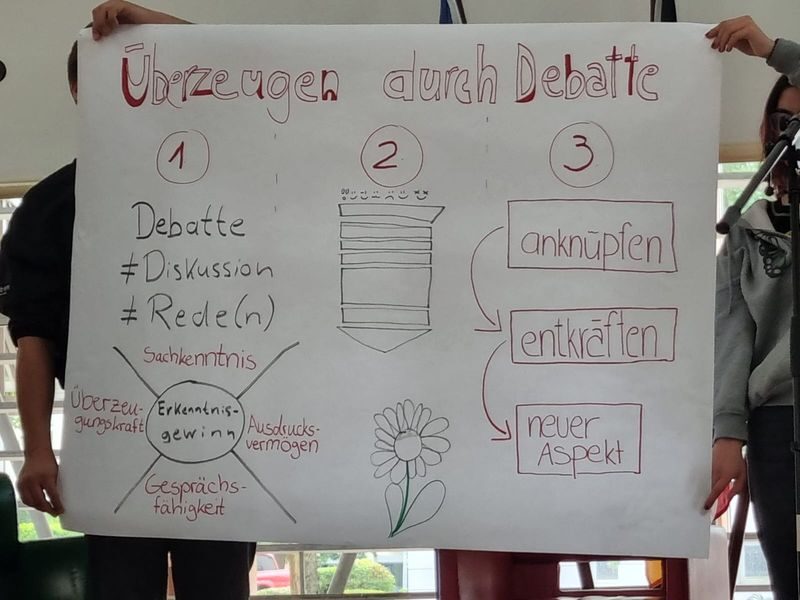 Überzeugen durch Debatte
1
Debatte
≠Diskussion
≠Rede(n)
Sachkenntnis
Überzeu-
gungskraft
Erkenntnis-
gewinn
Ausdrucks-
vermögen
Gesprächs-
fähigkeit
2
3
anknüpfen
entkräften
neuer
Aspekt